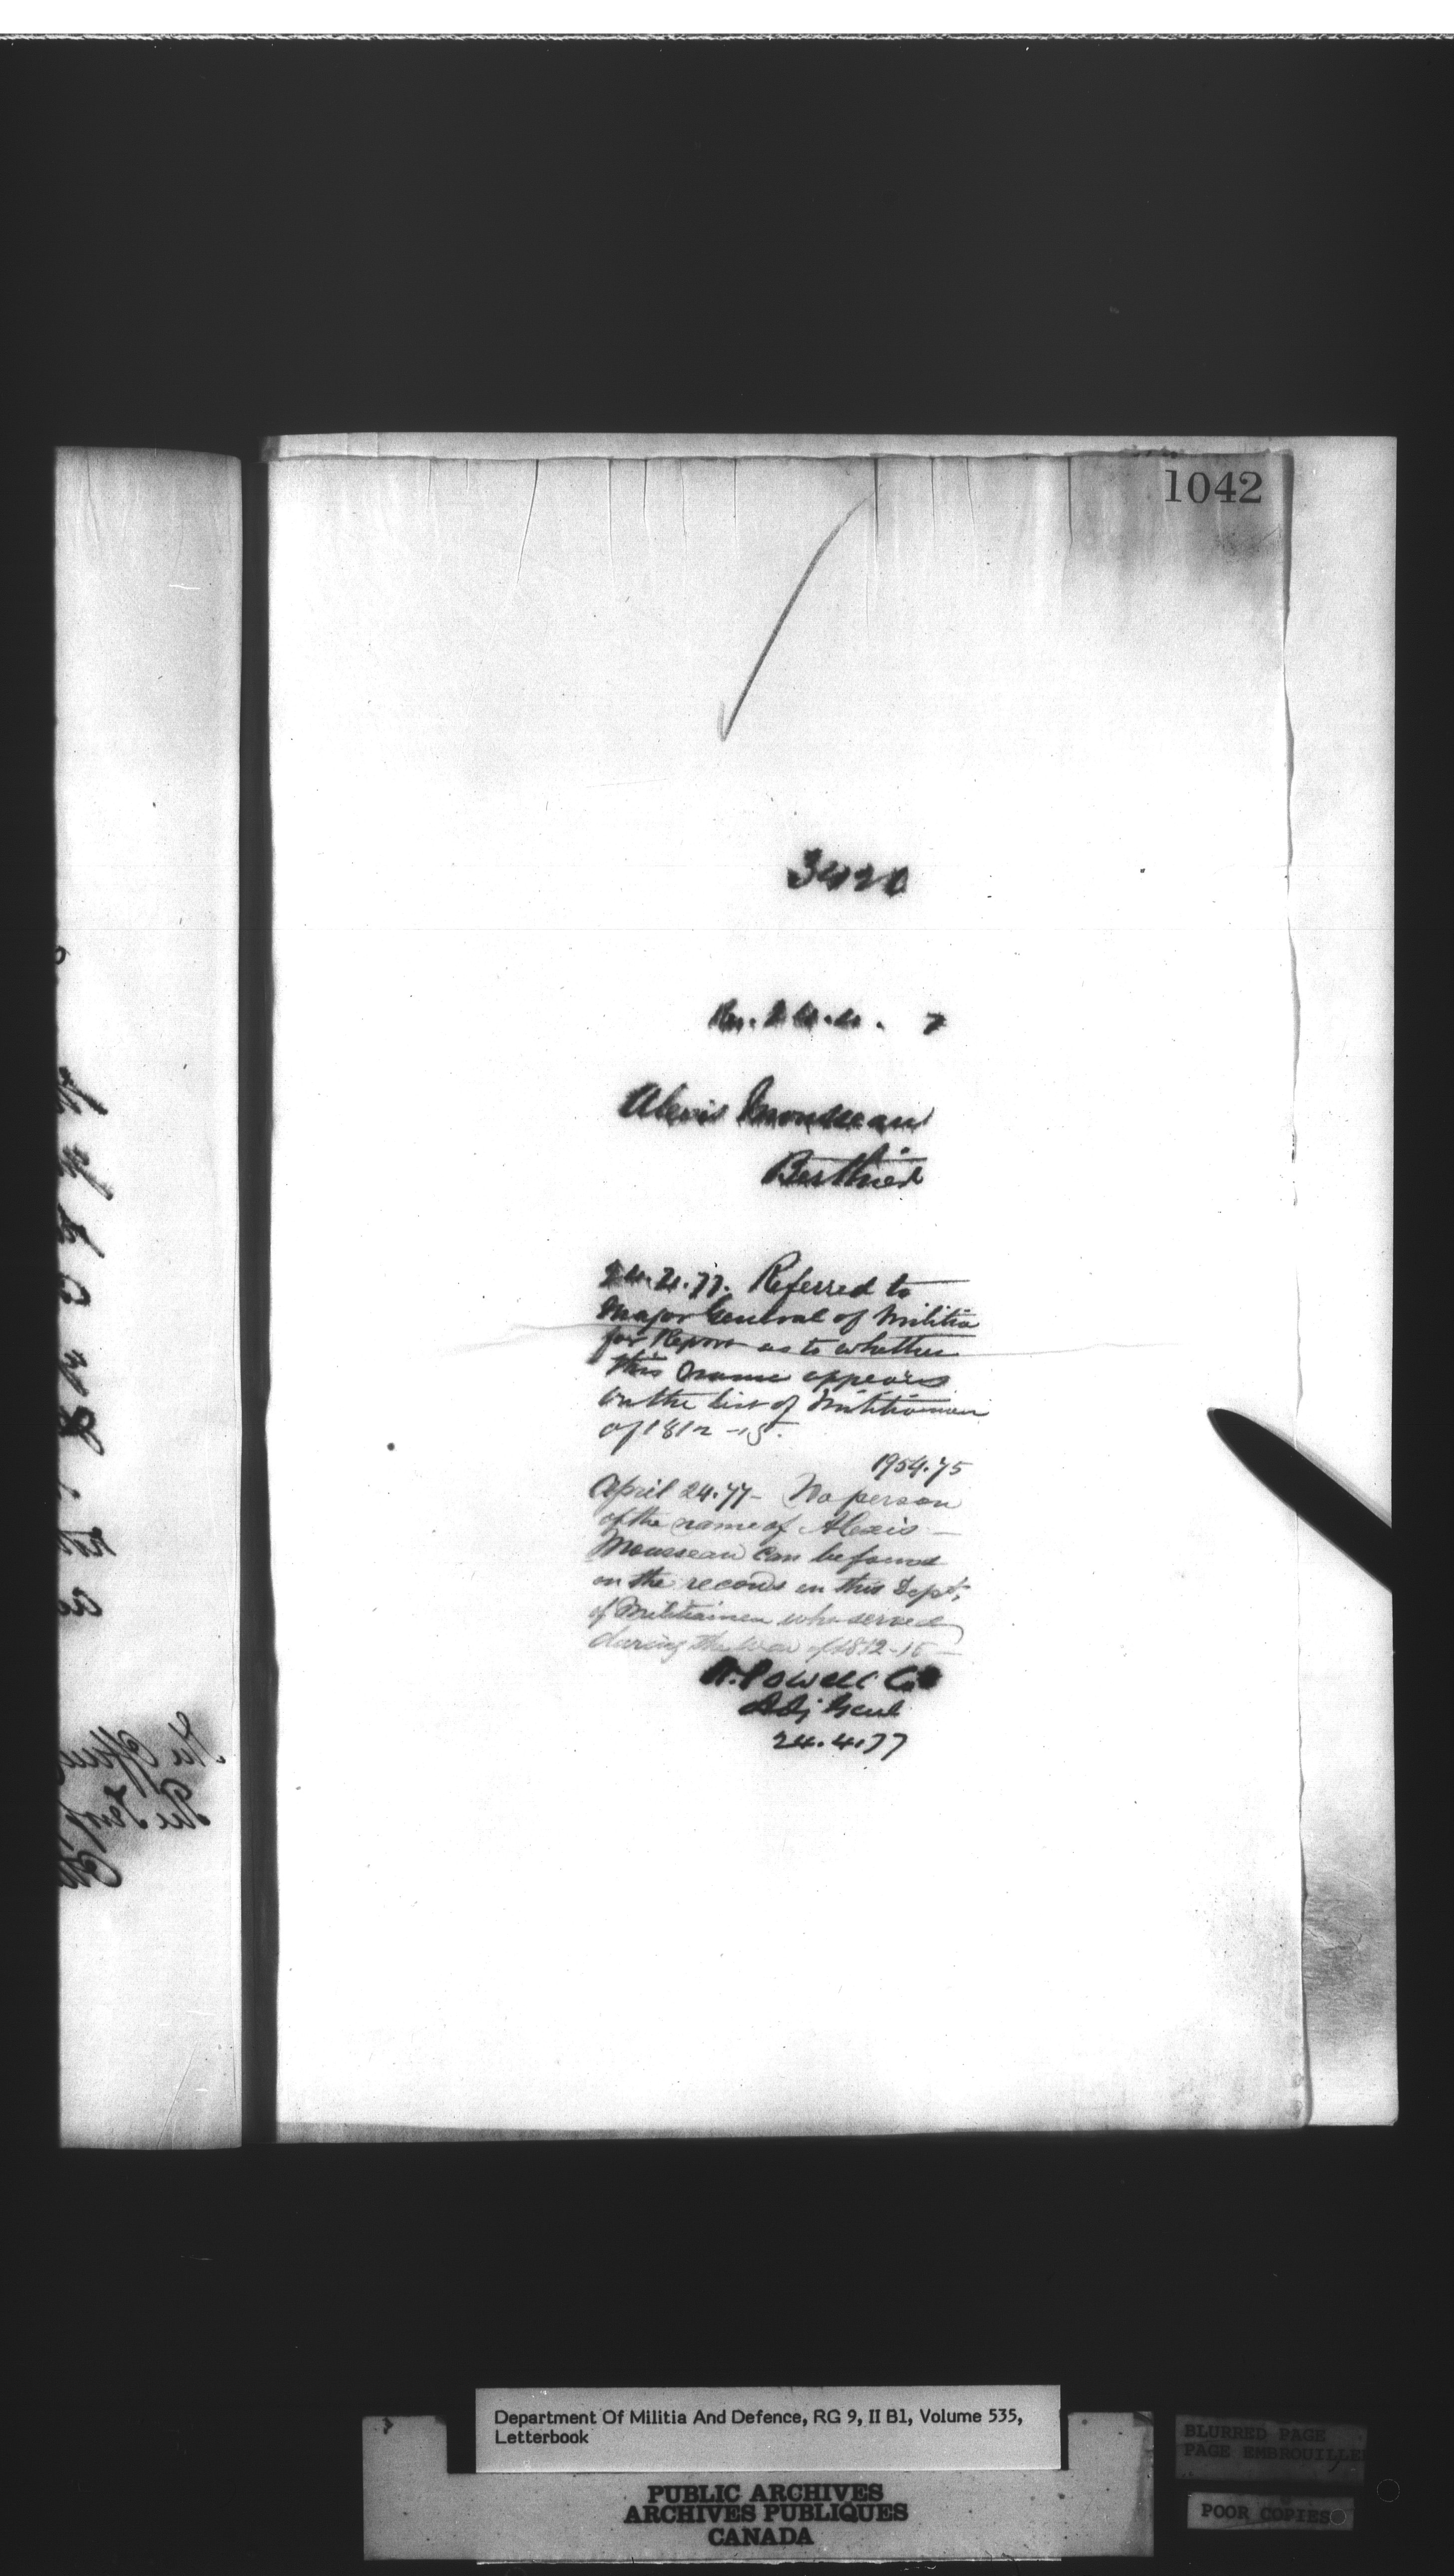 1042
3420
24.4. 7
Alexis Mousseau
Berthier
24.4.77. Referred to
Major General of Militia
for Report as to whether
this name appears
on the list of Militiamen
of 1812-15.
1954.75
April 24.77- No person
of the name of Alexis
Mousseau can be found
on the records in this Dept,
of Militiamen who served
during the War of 1812-15
W. Powell Col
Adj Genl
24.4.77
Department Of Militia And Defence, RG 9, II B1, Volume 535,
Letterbook
PUBLIC ARCHIVES
ARCHIVES PUBLIQUES
CANADA
BLURRED PAGE
PAGE EMBROUILLEE
POOR COPIES